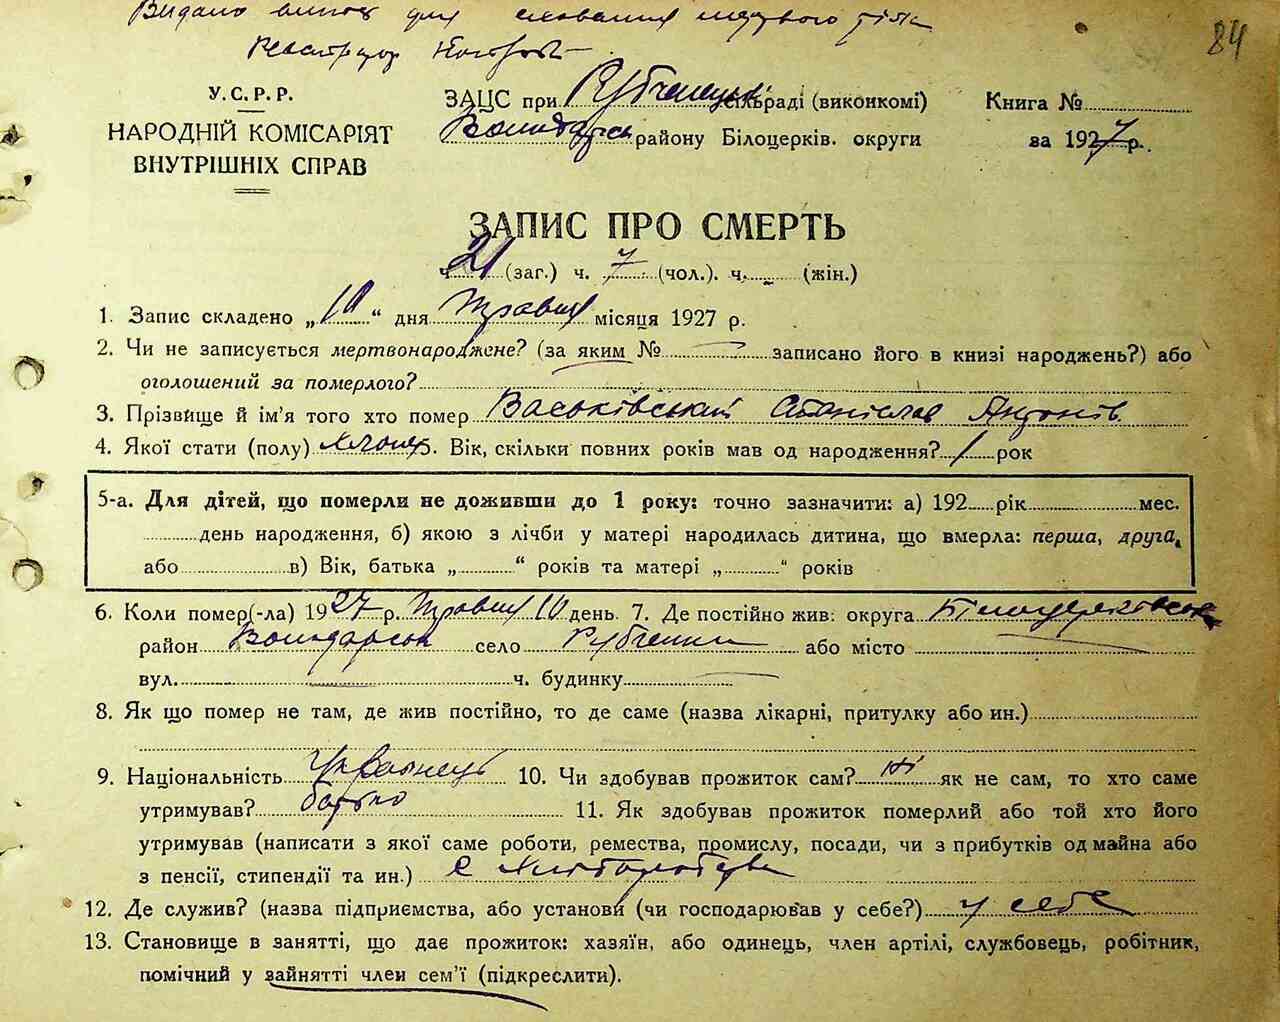 Видано випис для поховання мертвого тіла
Реєстратор
84
У.С.Р.Р.
НАРОДНІЙ КОМІСАРІЯТ
ВНУТРІШНІХ СПРАВ
ЗАЦС при Рубченецькі сільраді (виконкомі)
район у Білоцерків. округи
Книга №
за 1927 р.
ЗАПИС ПРО СМЕРТЬ
ч. 21 (заг.) ч. 7 (чол.). ч. (жін.)
1. Запис складено „10“ дня травня місяця 1927 р.
2. Чи не записується мертвонароджене? (за яким № записано його в книзі народжень?) або
оголошений за померлого?
3. Прізвище й ім'я того хто помер Васьківський Станіслав Антонів.
4. Якої стати (полу) хлопець. Вік, скільки повних років мав од народження? 1 рок
5-а. Для дітей, що померли не доживши до 1 року: точно зазначити: а) 192 рік мес.
день народження, б) якою з лічби у матері народилась дитина, що вмерла: перша, друга,
або в) Вік, батька „ “ років та матері „ “ років
6. Коли помер(-ла) 1927 р. травня 10 день. 7. Де постійно жив: округа Білоцерківська
район село Рубченки або місто
вул. ч. будинку
8. Як що помер не там, де жив постійно, то де саме (назва лікарні, притулку або ин.)
9. Національність Українець 10. Чи здобував прожиток сам? ні як не сам, то хто саме
утримував? батько 11. Як здобував прожиток померлий або той хто його
утримував (написати з якої саме роботи, ремества, промислу, посади, чи з прибутків од майна або
з пенсії, стипендії та ин.) с Хліборобства
12. Де служив? (назва підприємства, або установи (чи господарював у себе?) у себе
13. Становище в занятті, що дає прожиток: хазяїн, або одинець, член артілі, службовець, робітник,
помічний у зайнятті член сем'ї (підкреслити).